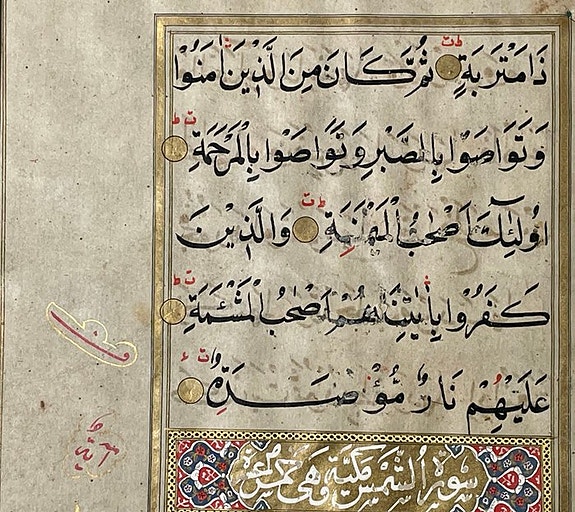 ذَا مَتْرَبَةٍ ثُمَّ كَانَ مِنَ الَّذِيْنَ اٰمَنُوْا
وَتَوَاصَوْا بِالصَّبْرِ وَتَوَاصَوْا بِالْمَرْحَمَةِ
اُولٰئِكَ اَصْحٰبُ الْمَيْمَنَةِ وَالَّذِيْنَ
كَفَرُوْا بِاٰيٰتِنَا هُمْ اَصْحٰبُ الْمَشْئَمَةِ
عَلَيْهِمْ نَارٌ مُؤْصَدَةٌ
سورة الشمس مكية وهى خمس عشرة